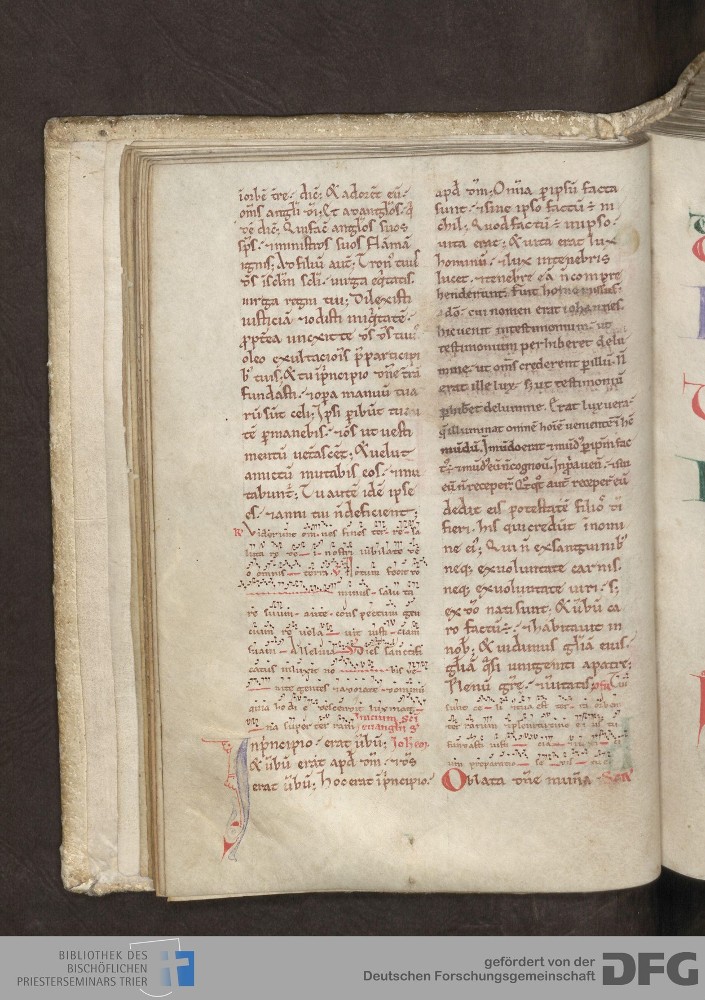 iorbē tr̄e. dic̄: Et adorēt eū.
om̄s angli dī: Et ad anglos. q̄
de dic̄: Qui facit anglos suos
sp̄s. ⁊ ministros suos flāmā
ignis; Ad filiū aut̄: Tron' tuus
d̄s in sclm̄ scli. uirga eq̄tatis.
uirga regni tui: Dilexisti
iusticiā ⁊ odisti iniq̄tatē.
ꝓpt̄ea unexit te d̄s d̄s tuus
oleo exultacioīs p̄ participi
b' tuis. Et tu īprincipio dn̄e trā
fundasti. ⁊ opa manuū tua
rū sūt celi; Ipsi ꝑibūt tu au
tē ꝑmanebis. ⁊ om̄s ut uesti
mentū uetascēt: Et uelut
amictū mutabis eos. ⁊ mu
tabunt': Tu autē idē ipse
es. ⁊ anni tui n̄ deficient;
R' Viderunt om nes fines ter re sa
luta re de i nostri iubilate de
o omnis terra. V Notum fecit do
minus salu ta
re suum ante cons pectum gen
cium re uela uit iusti ciam
suam Alleluia V Dies sanctifi
catus illuxit no bis ue
nite gentes ⁊ adorate dominū
quia ho di e descendit lux mag
na super ter ram Inicium sc̄i
euangłii s'
Inprincipio. erat ūbū: Joħem
& ūbū erat apd̄ dm̄. ⁊ d̄s
erat ūbū: Hoc erat īprincipio.
apd̄ dm̄: Om̄ia ꝑ ipsū facta
sunt. ⁊ sine ipso factū ē ni
chil. Quod factū ē in ipso.
uita erat: & uita erat lux
hominū. ⁊ lux in tenebris
lucet. ⁊ tenebre eā n̄ compre
henderunt. Fuit homo missus
a dō. cui nomen erat iohannes.
hic uenit in testimonium. ut
testimonium perhiberet de lu
mine. ut om̄s crederent ꝑ illū. N̄
erat ille lux. S; ut testimoniū
ꝑhibēt de lumine. Erat lux uera.
q̄ illuminat omnē hoīē uenientē ī hc̄
mūdū. In mūdo erat ⁊ mūd' ꝑ ipm̄ fac
t' ē. ⁊ mūd' eū n̄ cognou̅. In ꝓpa uen̄. ⁊ sui
eū n̄ receper̄. Qt'qt' aut̄ receper̄ eū
dedit eis potestatē filio' dī
fieri. his qui credūt in nomi
ne ei'; Qui n̄ ex sanguinib'
neq; ex uoluntate carnis.
neq; ex uoluntate uiri. s;
ex dō nati sunt. Et ūbū ca
ro factū ē. ⁊ habitauit in
nob'. Et uidimus gl̄iā eius.
gl̄iā q̄si unigeniti a patre:
Plenū gr̄e. ⁊ ueritatis. off' Tui
sunt ce li ⁊ tua est ter ra orbem
ter rarum ⁊ plenitudinem e ius tu
fundasti iusti cia ⁊ iudici
um preparatio se dis tue
Oblata dn̄e mun̄a. Secr'
BIBLIOTHEK DES
BISCHÖFLICHEN
PRIESTERSEMINARS TRIER
gefördert von der
Deutschen Forschungsgemeinschaft
DFG